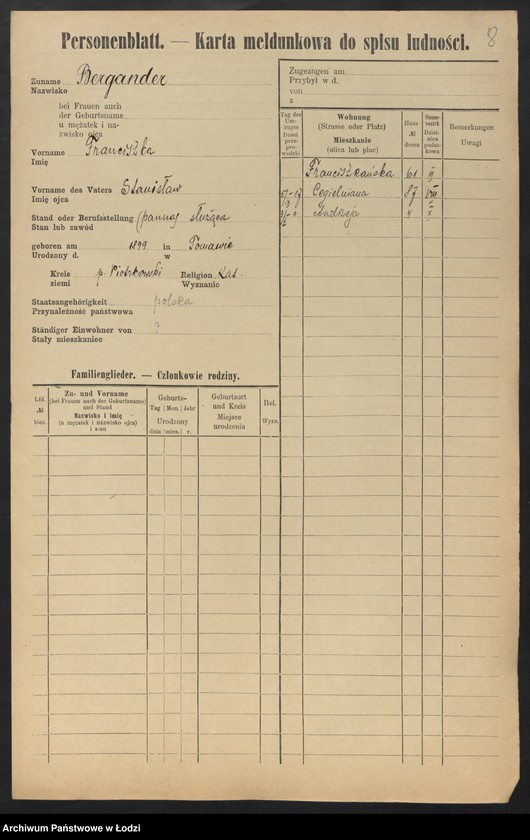 8
Personenblatt. — Karta meldunkowa do spisu ludności.
Zuname Bergander
Nazwisko
bei Frauen auch
der Geburtsname
u mężatek i na-
zwisko ojca
Vorname Franciszka
Imię
Vorname des Vaters Stanisław
Imię ojca
Stand oder Berufsstellung (panna) służąca
Stan lub zawód
geboren am 1899 in
Urodzony d. w
Kreis p. Piotrkowski Religion kat.
ziemi Wyznanie
Staatsangehörigkeit polska
Przynależność państwowa
Ständiger Einwohner von ?
Stały mieszkaniec
Zugezogen am
Przybył w d.
von
z
Tag des Um-zuges Dzień prze-prowadzki
Wohnung
(Strasse oder Platz)
Mieszkanie
(ulica lub plac)
Haus-
№
domu
Bemerkungen
Uwagi
Franciszkańska 61
Cegielniana 87 VIII
Andrzeja 4 X
Familienglieder. — Członkowie rodziny.
Lfd.
№
bież.
Zu- und Vorname
(bei Frauen auch der Geburtsname)
und Stand
Nazwisko i imię
(u mężatek i nazwisko ojca)
i stan
Geburts-
Tag | Mon. | Jahr
Urodzony
dnia | mies. | r.
Geburtsort
und Kreis
Miejsce
urodzenia
Rel.
Wyzn.
Archiwum Państwowe w Łodzi